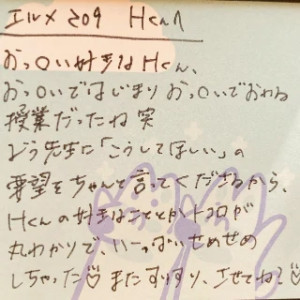 エルメ209 Hくんへ
おっ○い好きなHくん、
おっ○いではじまりおっ○いでおわる
授業だったね笑
どう先生に「こうしてほしい」の
要望をちゃんと言ってくださるから、
Hくんの好きなこととかトコロが
丸わかりで、いーっぱいせめせめ
しちゃった♡またすりすり、させてね♡